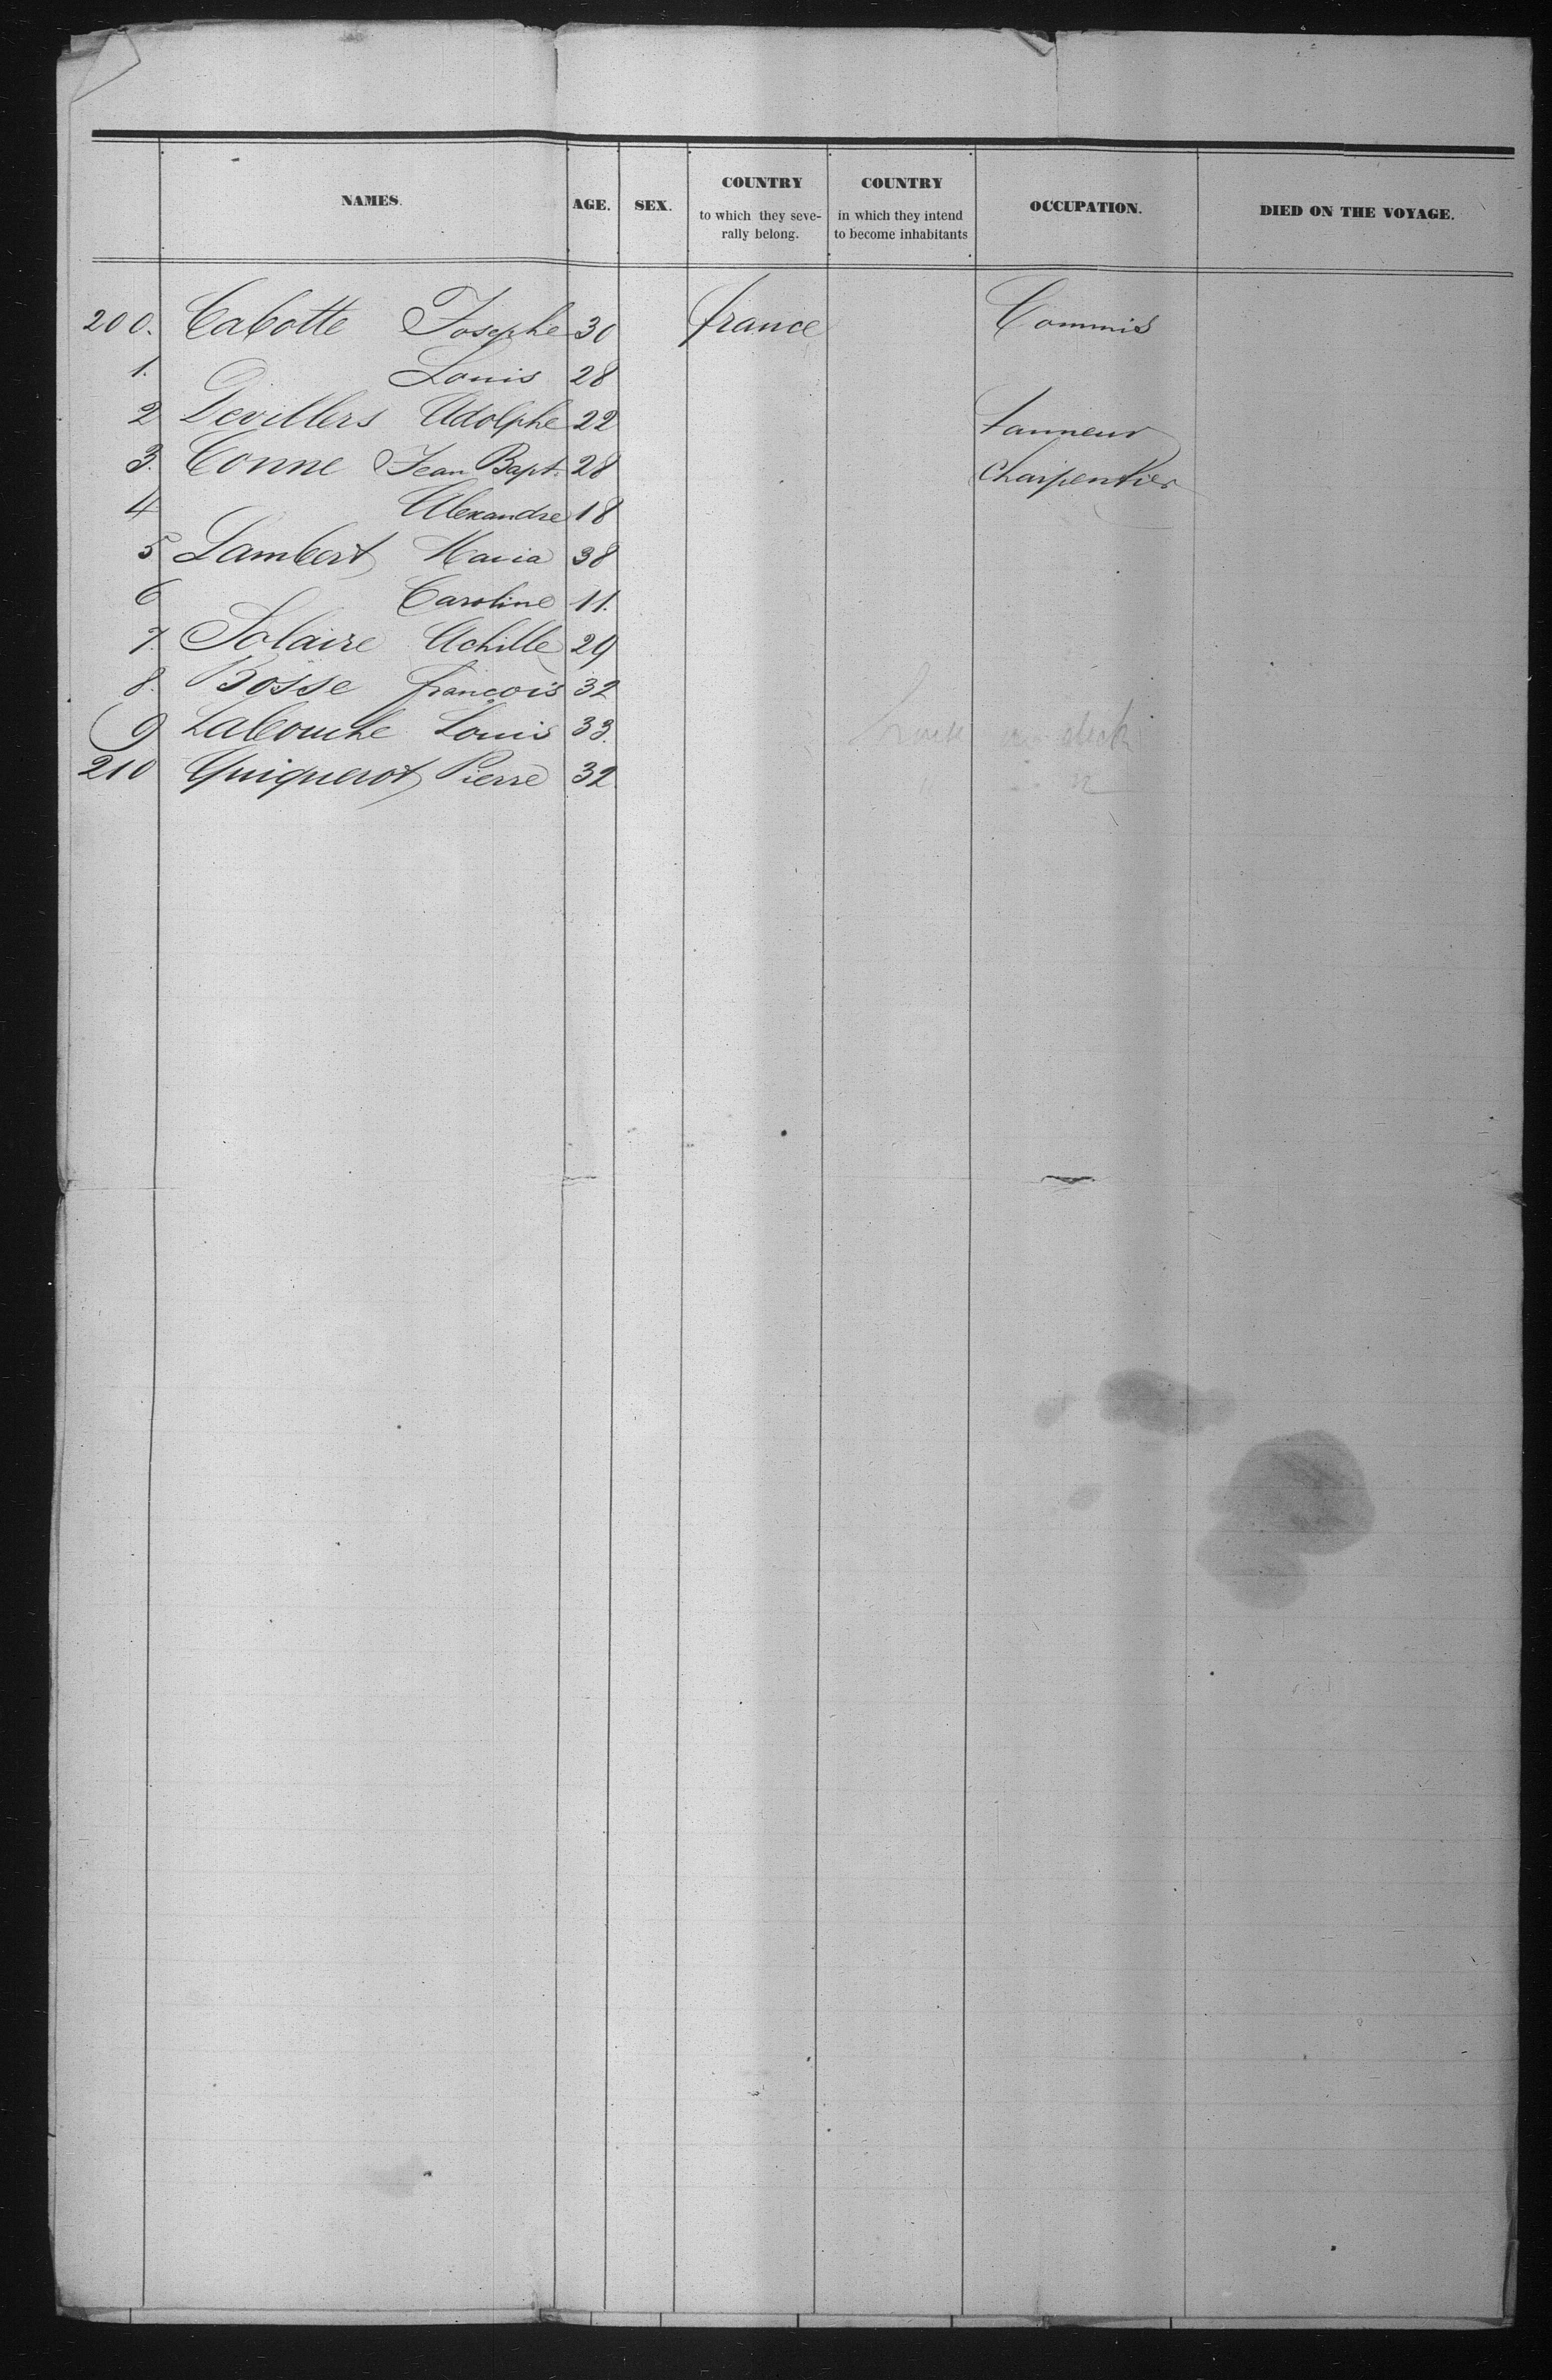 NAMES. AGE. SEX. COUNTRY to which they seve- rally belong. COUNTRY in which they intend to become inhabitants OCCUPATION. DIED ON THE VOYAGE.
200. Cabotte Josephe 30 france Commis
1. Louis 28
2 Devillers Adolphe 22 tanneur
3. Conne Jean Bapt. 28 Charpentier
4 Alexandre 18
5 Lambert Maria 38
6 Caroline 11.
7. Solaire Achille 29
8. Bosse françois 32
9 Labouche Louis 33. deck
210 Quiquerot Pierre 32